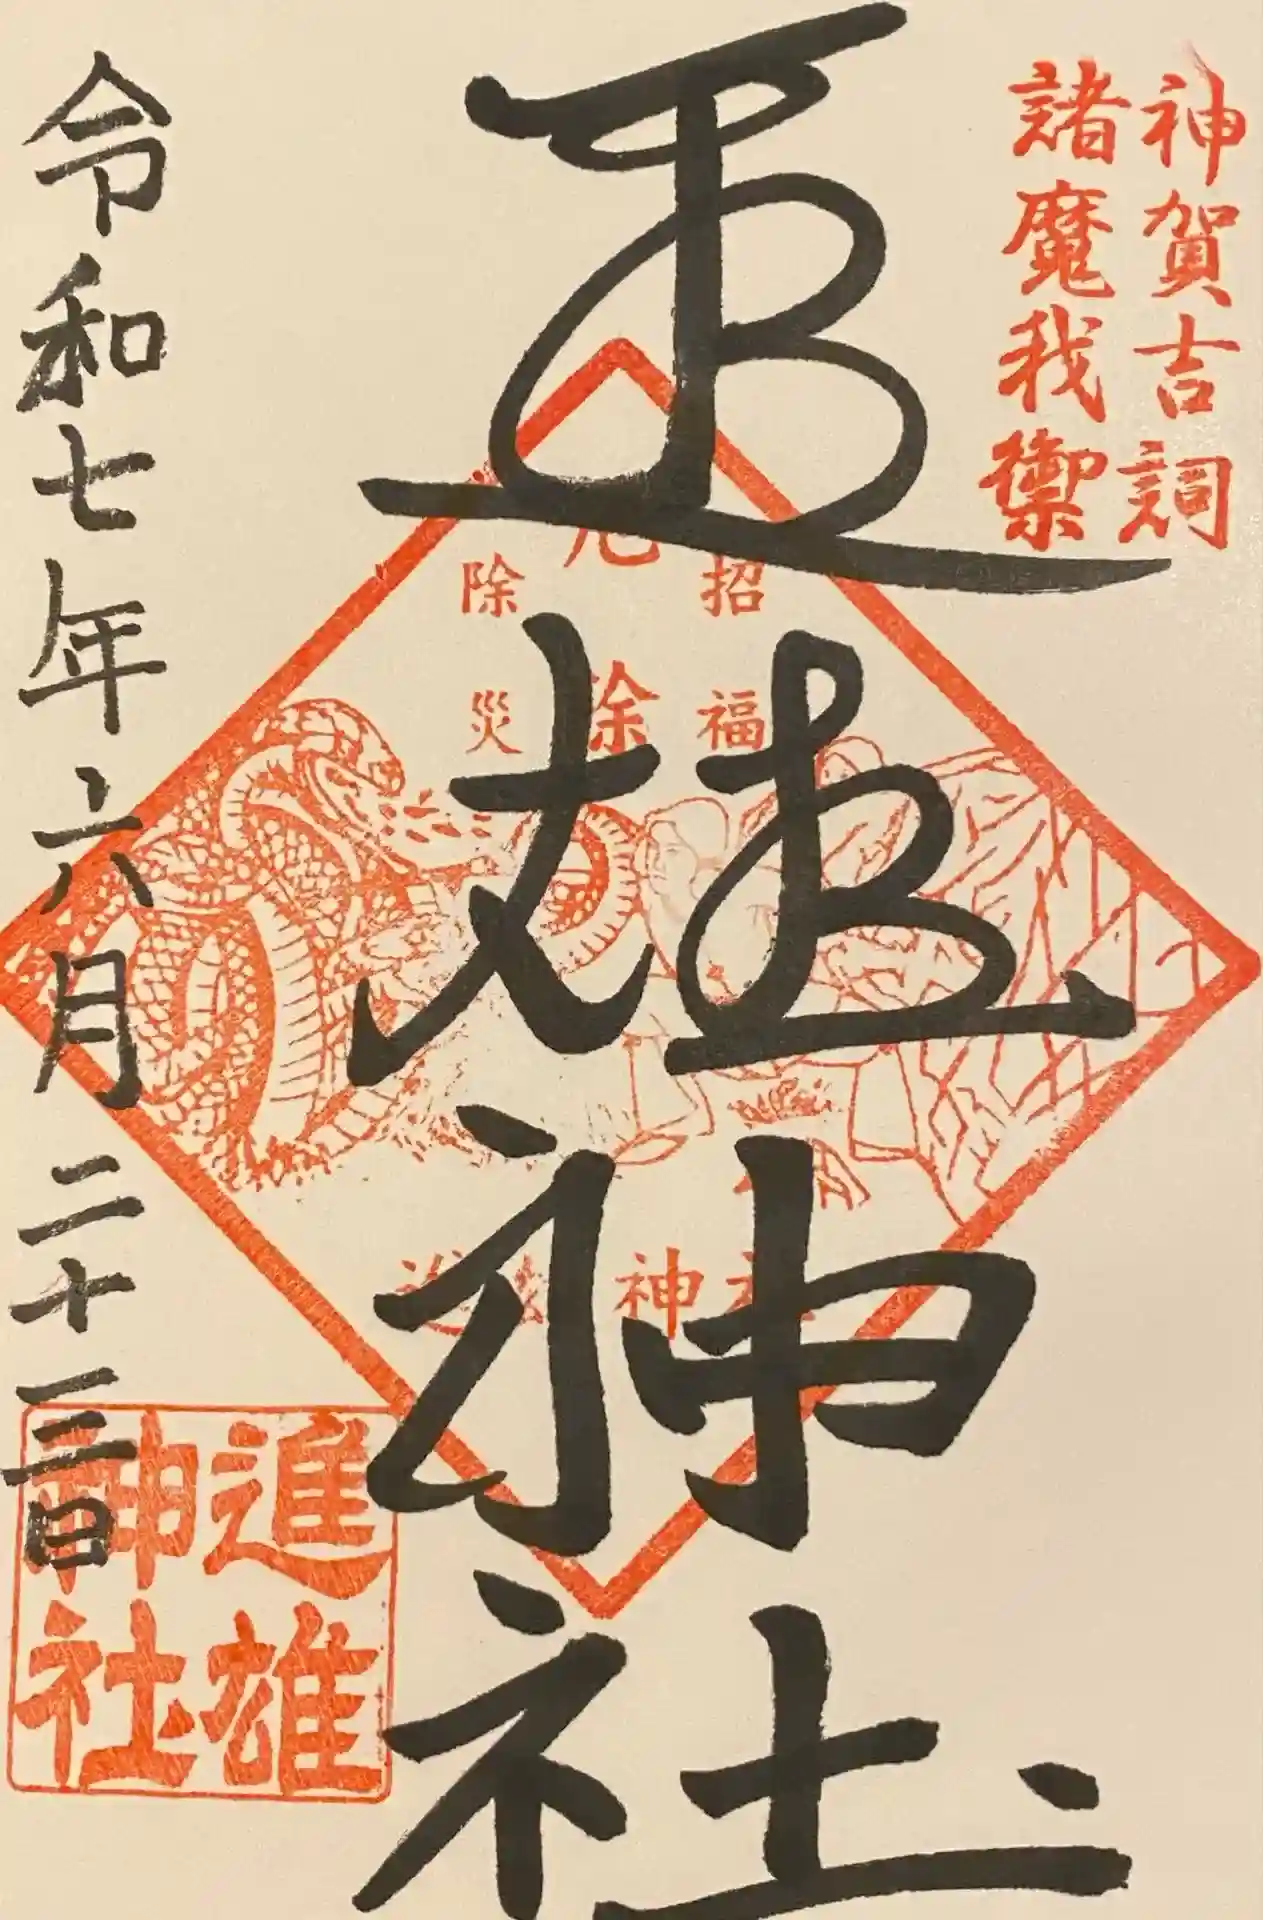 神賀吉詞
諸魔我禦
進雄神社
招福
厄除
除災
進雄神社
令和七年六月二十三日
進雄
神社